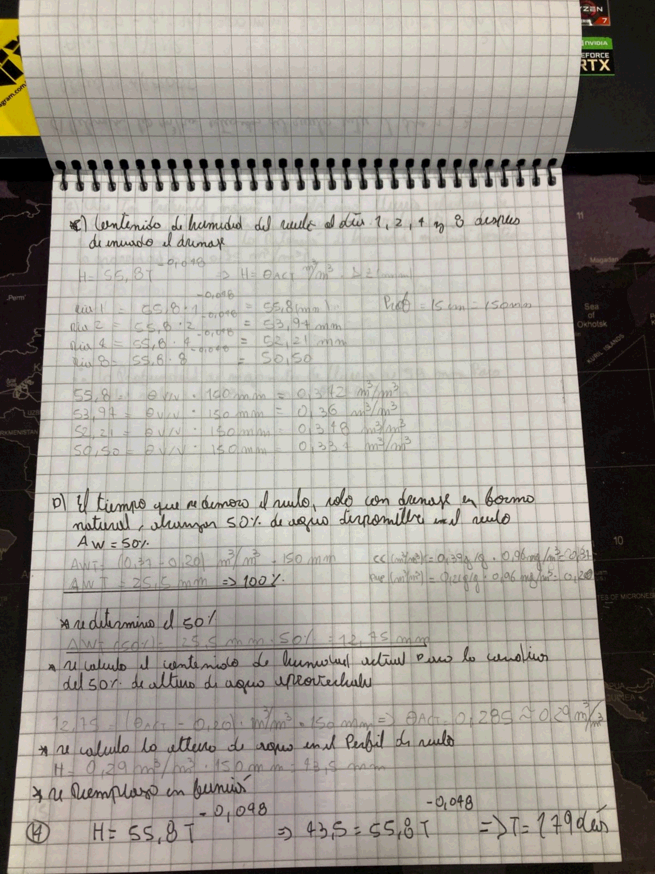 YZEN
7
NVIDIA
EFORCE
RTX
agram.com
11
Magadan
Sea
of
Okhotsk
KURIL ISLANDS
Perm'
10
c) Contenido de humedad del suelo al día 1, 2, 4 y 8 despues
de iniciado el drenaje
H = 55,8T^-0,048 => H = θACT m³/m³ ·
Día 1 = 55,8 · 1^-0,048 = 55,8 (mm) Prof = 15 cm = 150 mm
Día 2 = 55,8 · 2^-0,048 = 53,97 mm
Día 4 = 55,8 · 4^-0,048 = 52,21 mm
Día 8 = 55,8 · 8^-0,048 = 50,50
55,8 = θV/V · 150 mm = 0,372 m³/m³
53,97 = θV/V · 150 mm = 0,36 m³/m³
52,21 = θV/V · 150 mm = 0,348 m³/m³
50,50 = θV/V · 150 mm = 0,337 m³/m³
D) El tiempo que se demora el suelo, solo con drenaje en forma
natural, alcanzar 50% de agua disponible en el suelo
AW = 50%
AWT = (0,37 - 0,20) m³/m³ · 150 mm cc (m³/m³) = 0,39 g/g · 0,96 mg/m³ = 0,37
AWT = 25,5 mm => 100% (m³/m³) = 0,21 g/g · 0,96 mg/m³ = 0,20
* se determina el 50%
AWT (50%) = 25,5 mm · 50% = 12,75 mm
* se calcula el contenido de humedad actual para la condición
del 50% de altura de agua aprovechable
12,75 = (θACT - 0,20) · m³/m³ · 150 mm => θACT = 0,285 ≈ 0,29 m³/m³
* se calcula la altura de agua en el Perfil de suelo
H = 0,29 m³/m³ · 150 mm = 43,5 mm
* se Reemplaza en función
H = 55,8 T^-0,048 => 43,5 = 55,8 T^-0,048 => T = 179 días